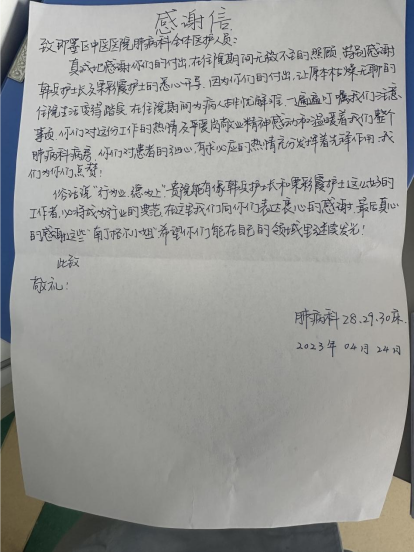 感谢信
致即墨区中医医院肺病科全体医护人员:
真诚地感谢你们的付出,在住院期间无微不至的照顾,特别感谢
韩护士长及栗彩霞护士的悉心评导,因为你们的付出,让原本枯燥无聊的
住院生活变得踏实,在住院期间为病人排忧解难,一遍遍叮嘱我们注意
事项,你们对这份工作的热情及平爱岗敬业精神感动和温暖着我们整个
肺病科病房,你们对患者的细心,有求必应的热情充分发挥着先锋作用,我
们为你们点赞!
俗话说"行行业,德为上"贵院能有像韩护士长和栗彩霞护士这么好的
工作者,必将成为行业的典范,在这里我们向你们表达衷心的感谢,最后真心
的感谢这些"南丁格尔小姐"希望你们能在自己的领域里继续发光!
此致
敬礼!
肺病科28.29.30床
2023年04月24日